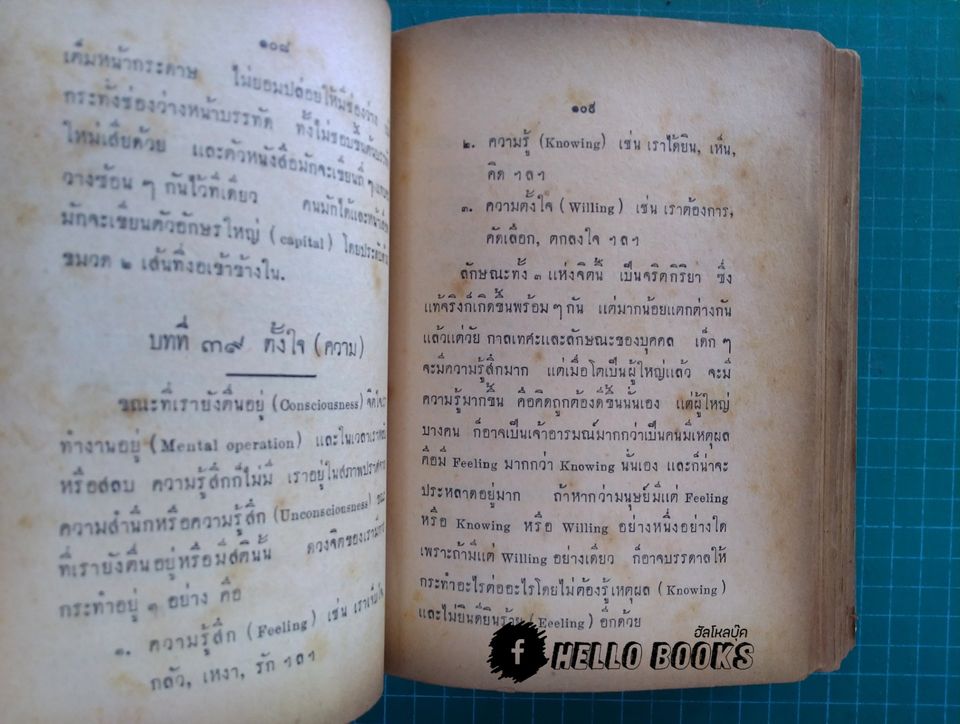 ๑๐๘
เต็มหน้ากระดาษ ไม่ยอมปล่อยให้มีช่องว่าง
กระทั่งช่องว่างหน้าบรรทัด ทั้งไม่ชอบขึ้นต้นบรรทัด
ใหม่เสียด้วย และตัวหนังสือมักจะเขียนถี่ ๆ
วางซ้อน ๆ กันไว้ที่เดียว คนมักได้และหน้าเลือด
มักจะเขียนตัวอักษรใหญ่ (capital) โดยประดับด้วย
ขมวด ๒ เส้นที่งอเข้าข้างใน.
บทที่ ๓๙ ตั้งใจ (ความ)
ขณะที่เรายังตื่นอยู่ (Consciousness) จิตใจ
ทำงานอยู่ (Mental operation) และในเวลาเราหลับ
หรือสลบ ความรู้สึกก็ไม่มี เราอยู่ในสภาพปราศจาก
ความสำนึกหรือความรู้สึก (Unconsciousness)
ที่เรายังตื่นอยู่หรือมีสตินั้น ดวงจิตของเรามีการ
กระทำอยู่ ๓ อย่าง คือ
๑. ความรู้สึก (Feeling) เช่น เราเจ็บใจ
กลัว, เหงา, รัก ฯลฯ
๑๐๙
๒. ความรู้ (Knowing) เช่น เราได้ยิน, เห็น,
คิด ฯลฯ
๓. ความตั้งใจ (Willing) เช่น เราต้องการ,
คัดเลือก, ตกลงใจ ฯลฯ
ลักษณะทั้ง ๓ แห่งจิตนี้ เป็นจริตกิริยา ซึ่ง
แท้จริงก็เกิดขึ้นพร้อม ๆ กัน แต่มากน้อยแตกต่างกัน
แล้วแต่วัย กาลเทศะและลักษณะของบุคคล เด็ก ๆ
จะมีความรู้สึกมาก แต่เมื่อโตเป็นผู้ใหญ่แล้ว จะมี
ความรู้มากขึ้น คือคิดถูกต้องดีขึ้นนั่นเอง แต่ผู้ใหญ่
บางคน ก็อาจเป็นเจ้าอารมณ์มากกว่าเป็นคนมีเหตุผล
คือมี Feeling มากกว่า Knowing นั่นเอง และก็น่าจะ
ประหลาดอยู่มาก ถ้าหากว่ามนุษย์มีแต่ Feeling
หรือ Knowing หรือ Willing อย่างหนึ่งอย่างใด
เพราะถ้ามีแต่ Willing อย่างเดียว ก็อาจบรรดาลให้
กระทำอะไรต่ออะไรโดยไม่ต้องรู้เหตุผล (Knowing)
และไม่ยินดียินร้าย (Eeeling) อีกด้วย
ฮัลโหลบุ๊ค
f HELLO BOOKS